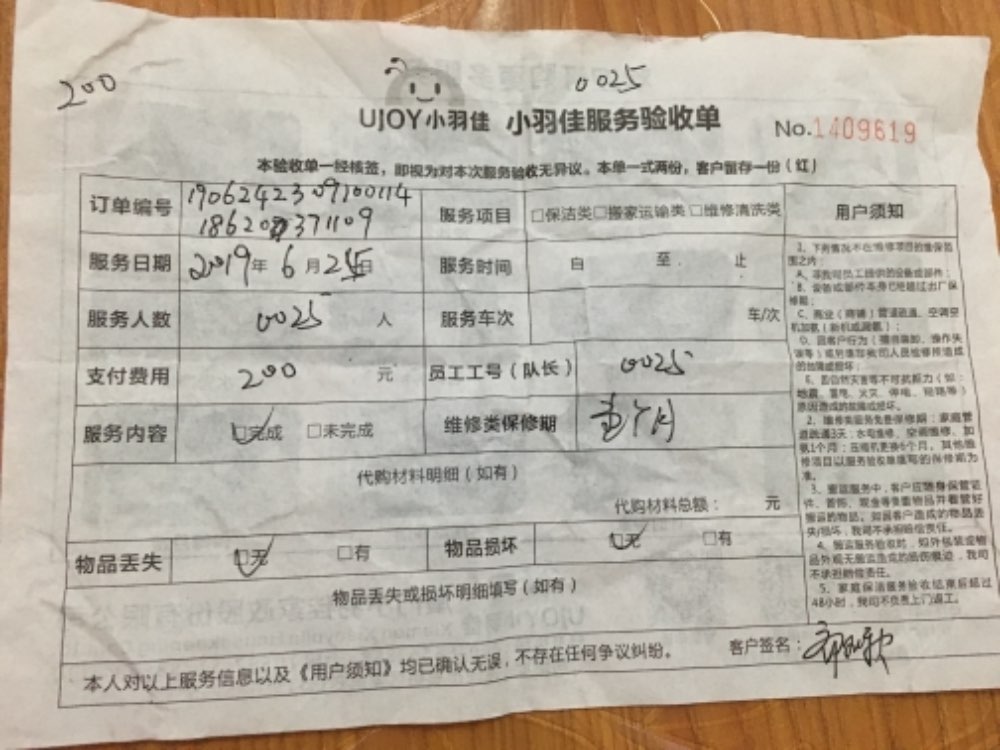 200
0025
UJOY小羽佳 小羽佳服务验收单 No.1409619
本验收单一经核签，即视为对本次服务验收无异议。本单一式两份，客户留存一份（红）
订单编号 1906242309100114
服务项目 □保洁类□搬家运输类□维修清洗类
用户须知
服务日期 2019年6月25日
服务时间 自 至 止
服务人数 0025 人
服务车次 车/次
支付费用 200 元
员工工号（队长） 0025
服务内容 □完成 □未完成
维修类保修期 个月
代购材料明细（如有）
代购材料总额： 元
物品丢失 □无 □有
物品损坏 □无 □有
物品丢失或损坏明细填写（如有）
本人对以上服务信息以及《用户须知》均已确认无误，不存在任何争议纠纷。 客户签名：
1、下列情况不在维修项目的维保范
围之内：
A、非我司员工提供的设备或部件；
B、设备或部件本身已经超过出厂保
修期；
C、商业（商铺）管道疏通、空调空
机加氨（新机或漏氨）；
地震、雷电、火灾、停电、短路等）
原因造成的故障或损坏。
2、维修类服务免费保修期：家庭管
道疏通3天；水电维修、空调维修、加
氨1个月；压缩机更换6个月，其他维
修项目以服务验收单填写的保修期为
准。
3、搬运服务中，客户应随身保管证
件、首饰、现金等贵重物品并看管好
搬运的物品。如因客户造成的物品丢
失/损坏，我司不承担赔偿责任。
4、搬运服务验收时，如外包装或物
品外观无搬运造成的损伤痕迹，我司
不承担赔偿责任。
5、家庭保洁服务验收结束后超过
48小时，我司不负责上门返工。